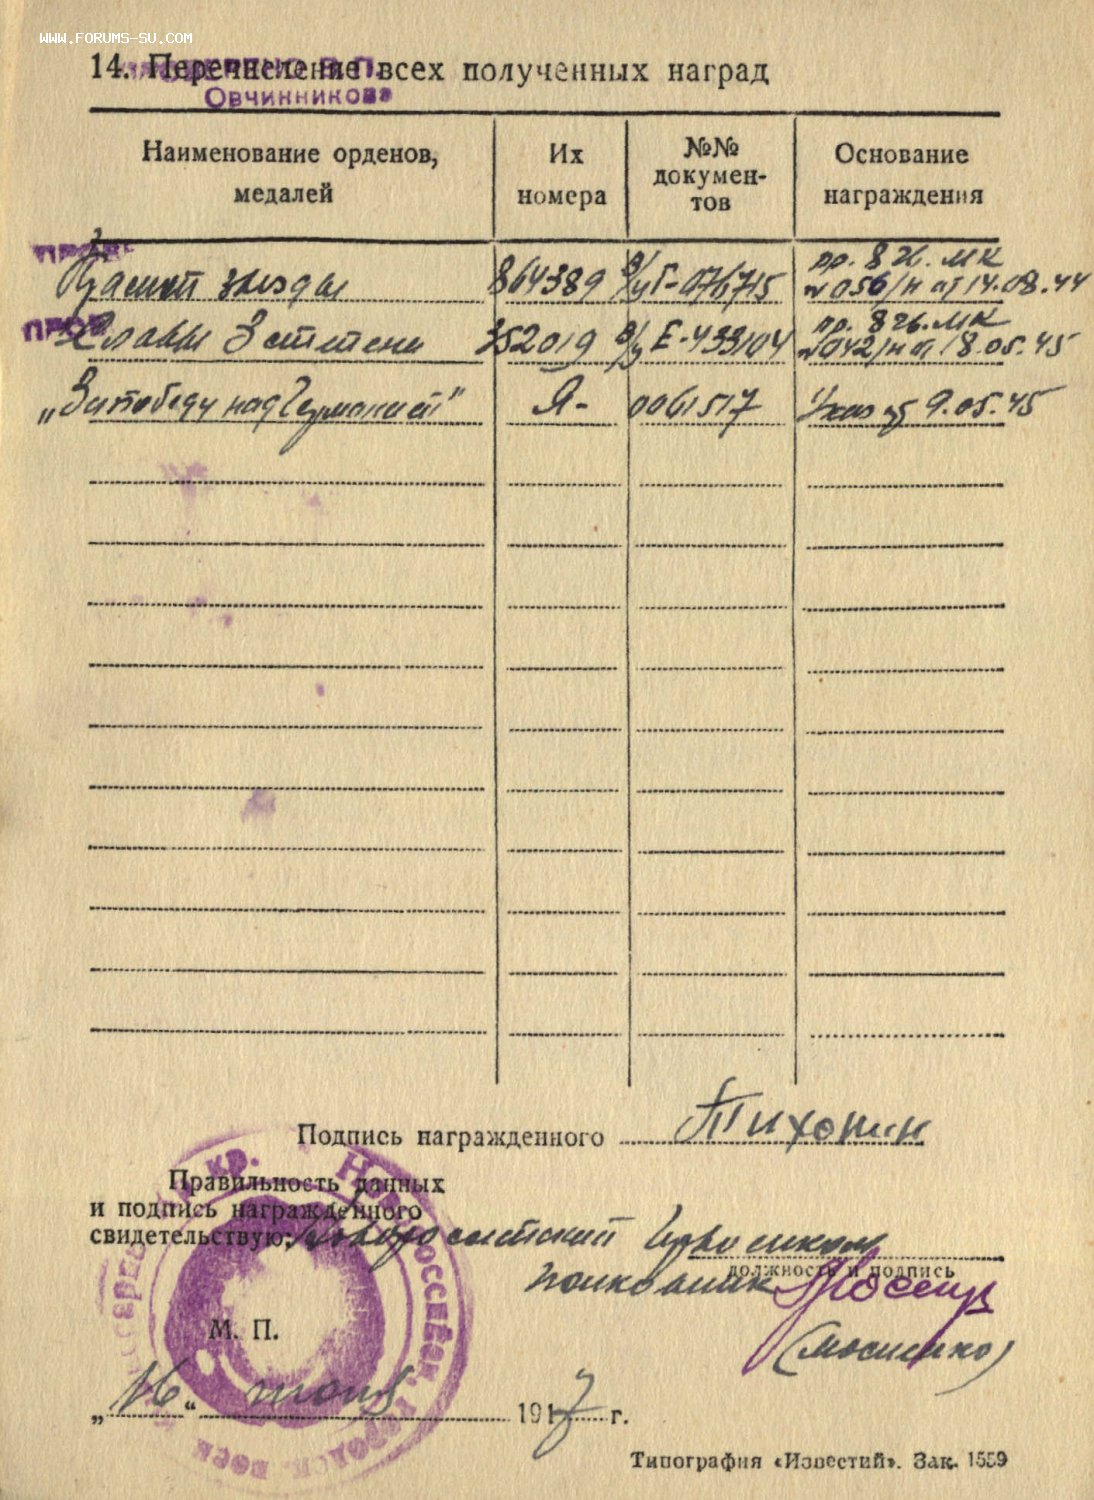 WWW.FORUMS-SU.COM
14. Перечисление всех полученных наград
Овчинникова
Наименование орденов, медалей
Их номера
№№ докумен-тов
Основание награждения
Красной звезды 864389 в/у Г-076715 пр. 8 гв. МК №056/н от 14.08.44
Славы 3 степени 352019 в/у Е-433104 пр. 8 гв. МК №042/н от 18.05.45
„За победу над Германией" Я- 0061517 Указ от 9.05.45
Подпись награжденного Тихонин
Правильность данных
и подпись награжденного
свидетельствую: Новороссийский Горвоенком
должность и подпись
полковник
М. П.
(Мосиенко)
„16“ июня 1947 г.
Типография «Известий». Зак. 1559